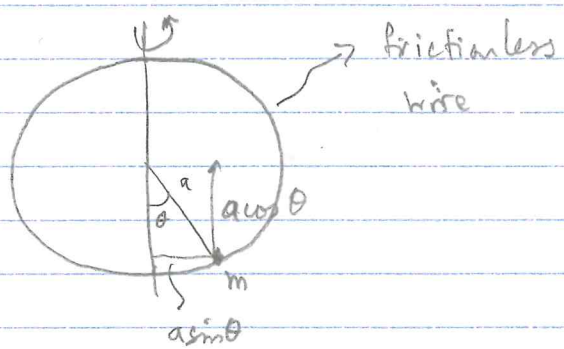 frictionless
wire
a
θ
a cos θ
m
a sin θ